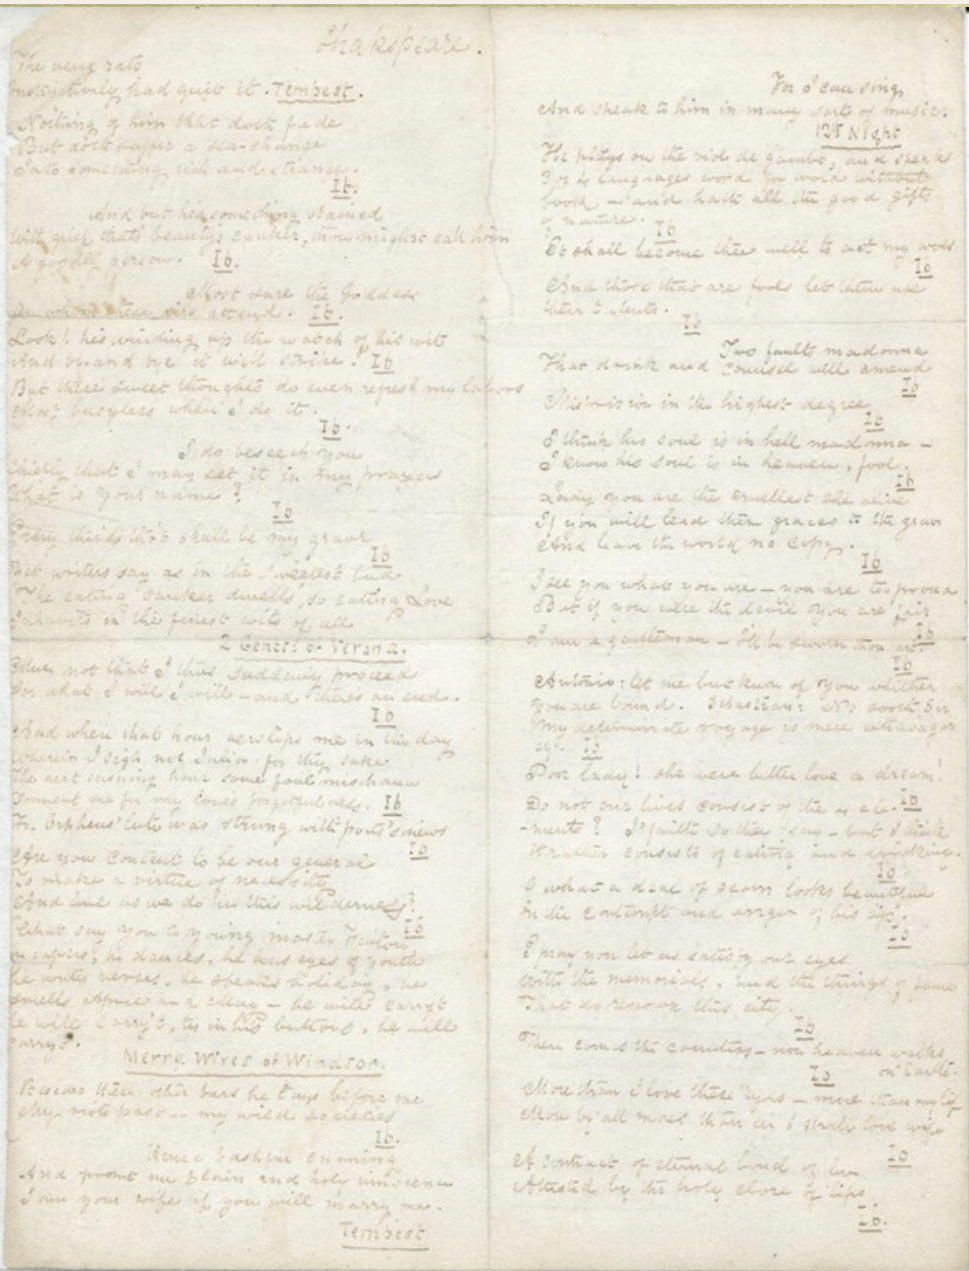 Shakspeare.
The very rats
Instinctively had quit it. Tempest.
Nothing of him that doth fade
But doth suffer a sea-change
Into something rich and strange.
Ib.
And but hes something stained
With grief thats beauty's canker, thou mightst call him
A goodly person. Ib.
Most sure the Goddess
On whom these airs attend. Ib.
Look! hes winding up the watch of his wit
And by and bye it will strike. Ib
But these sweet thoughts do even refresh my labors
Most busyless when I do it.
Ib.
I do beseech you
Chiefly that I may set it in my prayers
What is your name?
Ib
Every third tho't shall be my grave
Ib
Yet writers say as in the sweetest bud
The eating canker dwells, so eating Love
Inhabits in the finest wits of all
2 Gent: of Verona.
not that I thus suddenly proceed
For what I will I will - and there's an end.
Ib
And when that hour oerslips me in the day
Wherein I sigh not Julia for thy sake
The next ensuing hour some foul mischance
Torment me for my loves forgetfulness. Ib
For Orpheus' lute was strung with poets sinews
Ib
Are you content to be our general
To make a virtue of necessity
And live as we do in this wilderness?
Ib
What say you to young master Fenton
he capers, he dances, he has eyes of youth
he writes verses, he speaks holiday, he
smells April and May - he will carry't
he will carry't, tis in his buttons, he will
carry't.
Merry Wives of Windsor.
Besides these other bars he lays before me
My riots past - my wild societies
Ib.
Hence bashful cunning
And prompt me plain and holy innocence
I am your wife if you will marry me.
Tempest
For I can sing
And speak to him in many sorts of music.
12t Night
He plays on the viol de gambo, and speaks
3 or 4 languages word for word without
book - and hath all the good gifts
of nature.
Ib
It shall become thee well to act my woes
Ib
And those that are fools let them use
their talents.
Ib
Two faults madonna
That drink and counsel will amend
Ib
Misprision in the highest degree
Ib
I think his soul is in hell madonna -
I know his soul is in heaven, fool.
Ib
Lady you are the cruellest she alive
If you will lead these graces to the grave
And leave the world no copy.
Ib
I see you what you are - you are too proud
But if you were the devil you are fair
Ib
I am a gentleman - I'll be sworn thou art
Ib
Antonio: let me but know of you whither
you are bound. Sebastian: No sooth Sir
My determinate voyage is mere extravagan
cy. Ib
Poor lady! she were better love a dream!
Ib
Do not our lives consist of the 4 ele-
-ments? I'faith so they say - but I think
it rather consists of eating and drinking.
Ib
O what a deal of scorn looks beautiful
In the contempt and anger of his lip.
Ib
I pray you let us satisfy our eyes
With the memorials, and the things of fame
That do renown this city.
Ib
There comes the countess - now heaven walks
on Earth.
Ib
More than I love these eyes - more than my life
More by all mores than ere I shall love wife
Ib
A contract of eternal bond of love
Attested by the holy close of lips
Ib.